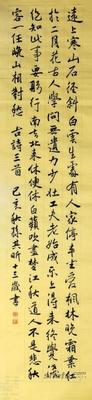 遠上寒山石徑斜白雲生處有人家停車坐愛楓林晚霜葉紅
於二月花古人學問無遺力少壯工夫老始成紙上得來終覺淺
絕知此事要躬行南去北來休便休白蘋吹盡楚江秋道人不是悲秋
客一任晚山相對愁 古詩三首 己亥秋孫 昕十三歲書